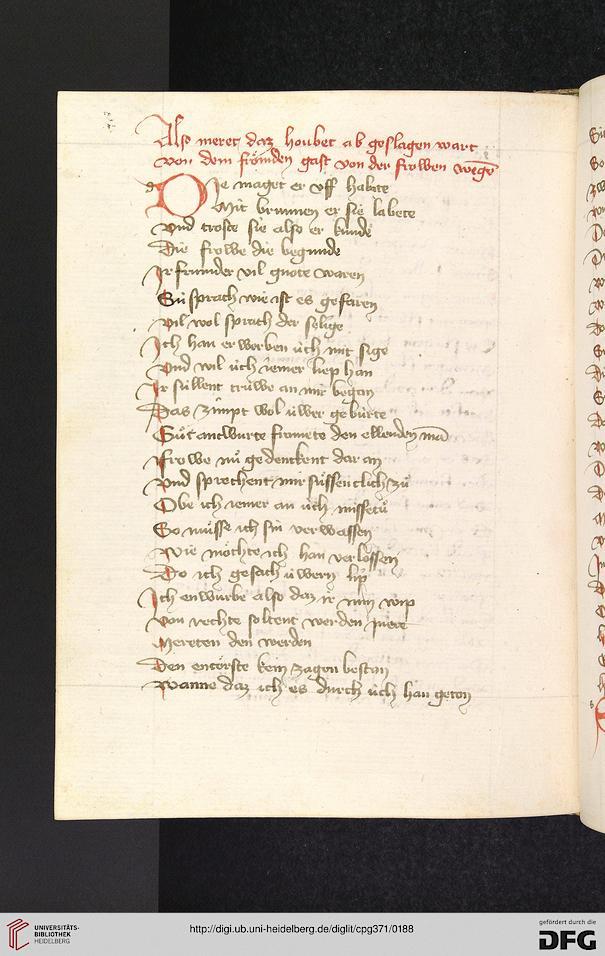 Also meret daz houbet ab geslagen wart
von dem frömden gast von der frowen wegē
DIe maget er vff habite
Mit brunnen er sie labete
vnd troste sie also er kunde
Die frowe die begunde
Ir frunder vil gnote waren
Sú sprach wie ist es gefaren
vil wol sprach der selige
Ich han erworben úch mit sige
vnd wil úch iemer liep han
Ir súllent trúwe an mir began
Das zimpt wol úwer gebúrte
Gút antwurte den ellenden mā
frowe nú gedenckent dar an
vnd sprechent mir sússenclich zú
Obe ich iemer an úch missetú
So músse ich sin verwassen
wie möchte ich han verlossen
Do ich gesach úwern lip
Ich enwurbe also daz ir min wip
von rechte soltent werden
Mereten den werden
Den entörste kein zagen bestan
wanne daz ich es durch úch han geton
UNIVERSITÄTS-
BIBLIOTHEK
HEIDELBERG
http://digi.ub.uni-heidelberg.de/diglit/cpg371/0188
gefördert durch die
DFG